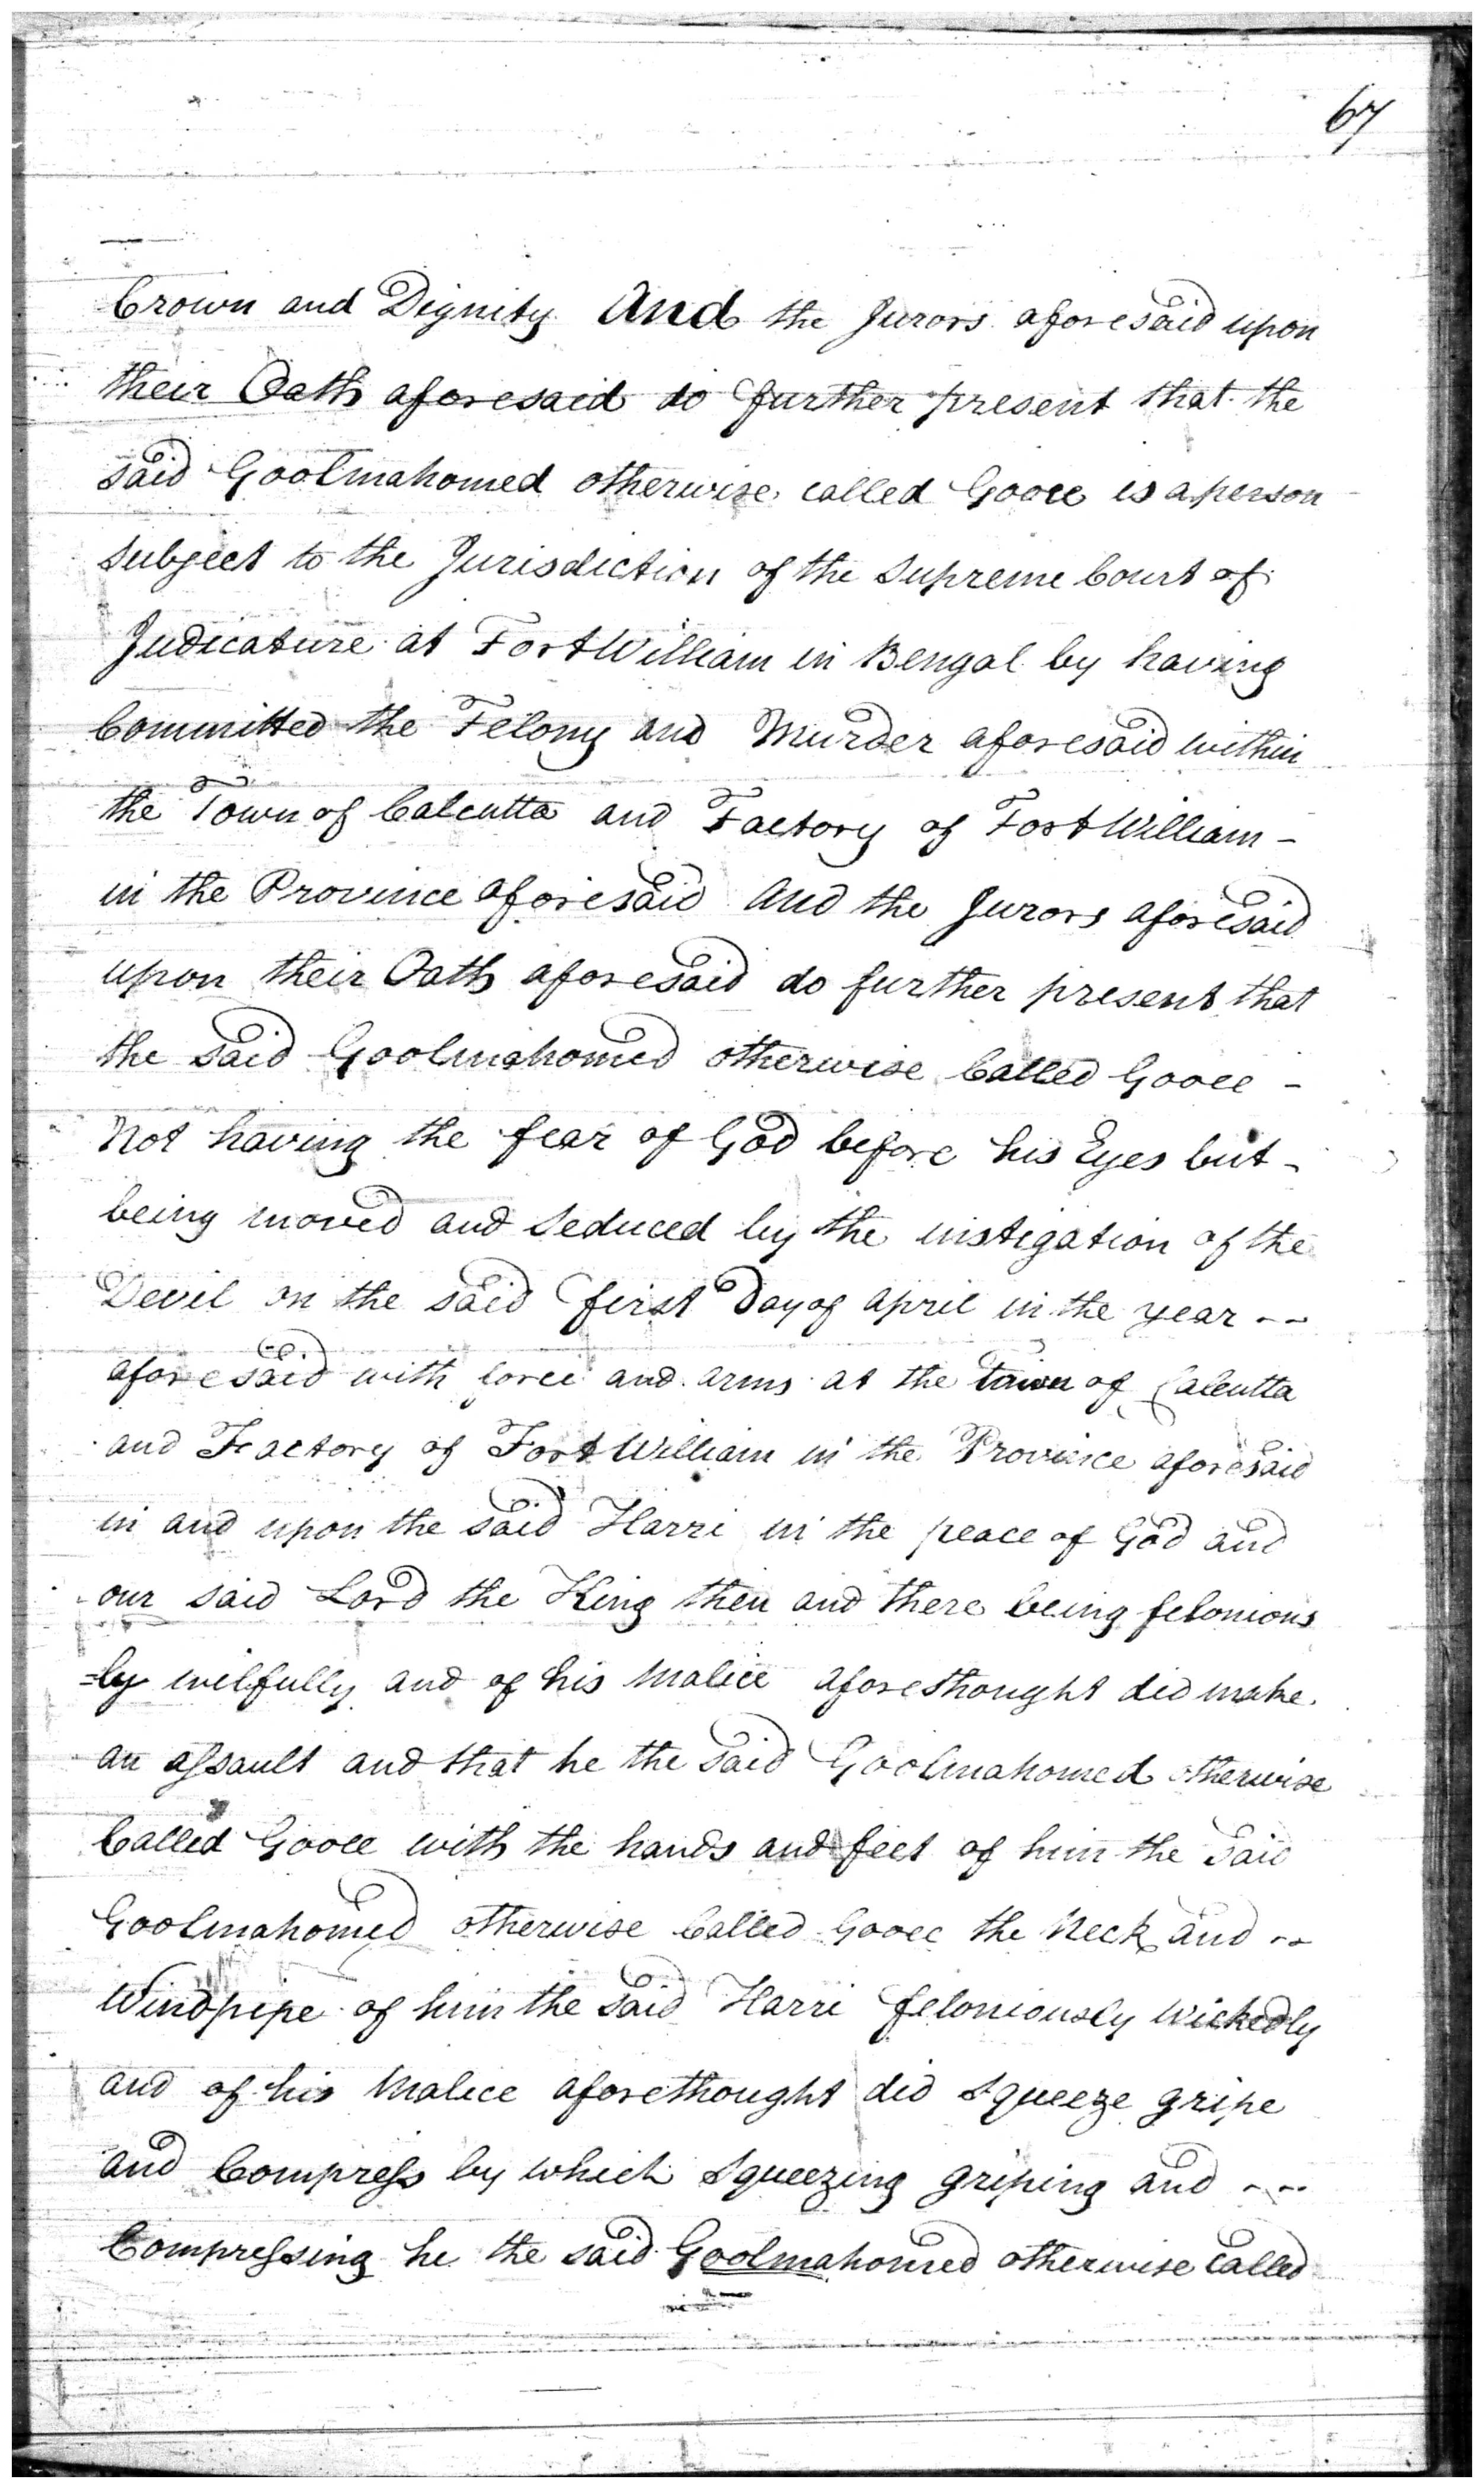 67
Crown and Dignity And the Jurors aforesaid upon
their Oath aforesaid do further present that the
said Goolmahomed otherwise called Gooee is a person
subject to the Jurisdiction of the Supreme Court of
Judicature at Fort William in Bengal by having
Committed the Felony and Murder aforesaid within
the Town of Calcutta and Factory of Fort William -
in the Province aforesaid And the Jurors aforesaid
upon their Oath aforesaid do further present that
the said Goolmahomed otherwise Called Gooee -
Not having the fear of God before his Eyes but -
being moved and seduced by the instigation of the
Devil on the said first Day of April in the year --
aforesaid with force and arms at the town of Calcutta
and Factory of Fort William in the Province aforesaid
in and upon the said Harri in the peace of God and
our said Lord the King then and there being felonious
=ly wilfully and of his Malice aforethought did make
an assault and that he the said Goolmahomed otherwise
Called Gooee with the hands and feet of him the said
Goolmahomed otherwise Called Gooee the Neck and --
Windpipe of him the said Harri feloniously Wickedly
and of his Malice aforethought did Squeeze gripe
and Compress by which Squeezing griping and ---
Compressing he the said Goolmahomed otherwise Called